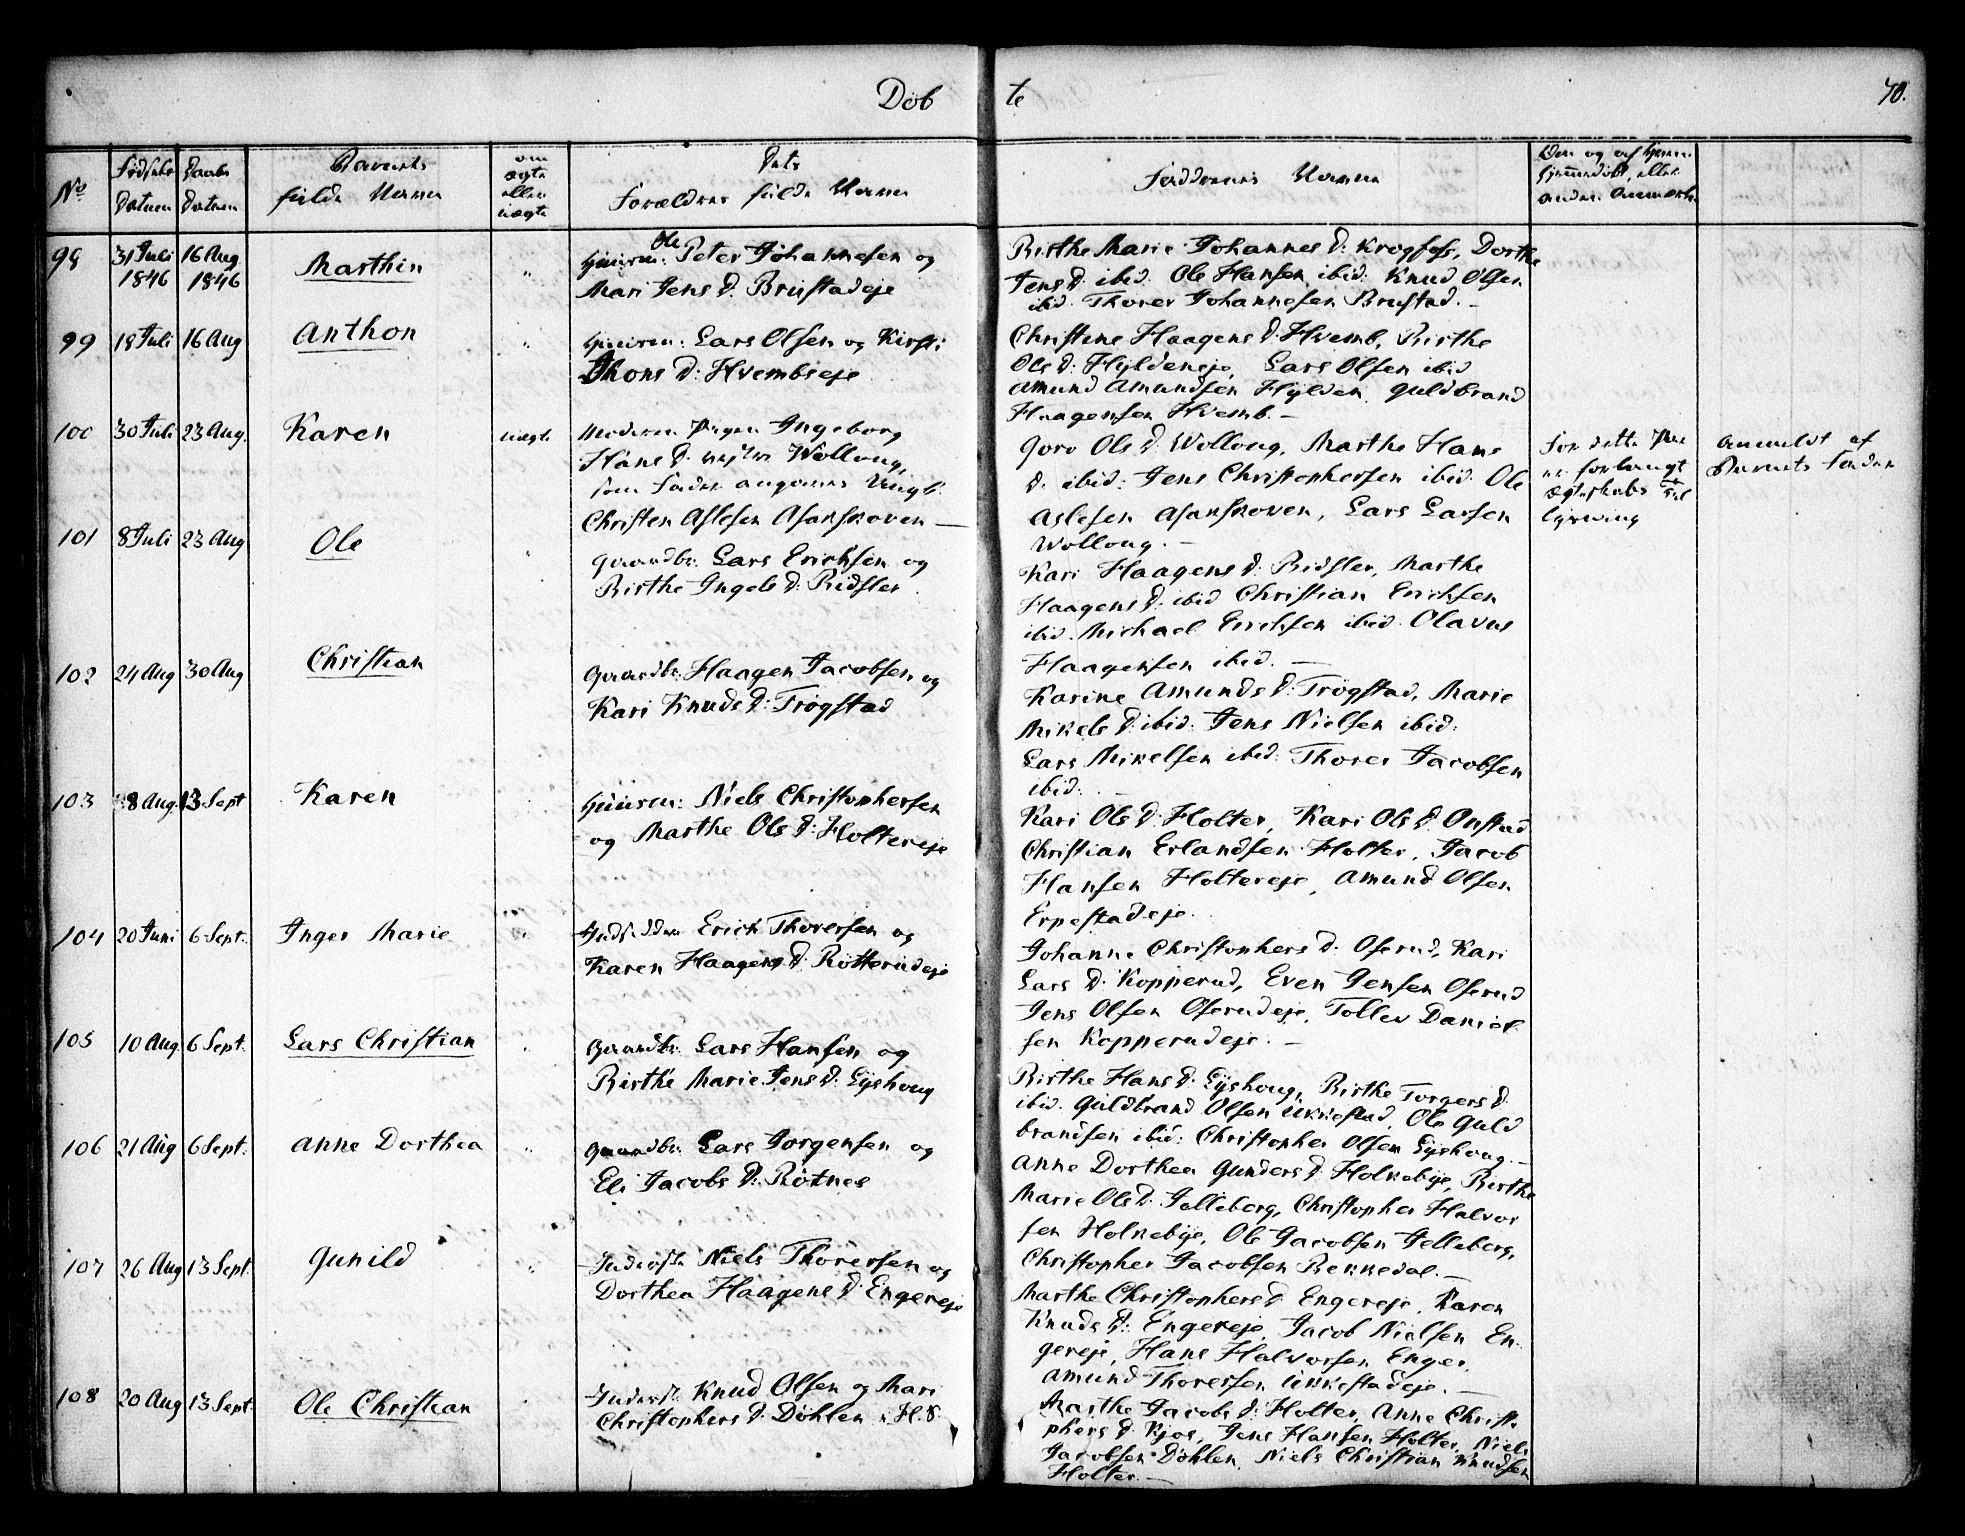 Døb te 70.
No
Fødsels Datum
Daabs Datum
Barnets fulde Navn
om ægte eller uægte
Dets Forældres fulde Navn
Faddrenes Navne
98 31 Juli 1846 16 Aug 1846 Marthin
Ole
Huusm: Peter Johannesen og
Mari Jens D. Brustadeje
Birthe Marie Johannes D: Krogfoss, Dorthe
Jens D. ibid. Ole Hansen ibid. Knud Olsen
ibid. Thorer Johannesen Brustad. —
99 18 Juli 16 Aug Anthon
Huusm: Lars Olsen og Kirsti
Thons D: Hvembseje
Christine Haagens D: Hvemb, Birthe
Ols D: Hyldeneje, Lars Olsen ibid
Amund Amundsen Hylden Guldbrand
Haagensen Hvemb. —
100 30 Juli 23 Aug. Karen uægte
Moderen Pigen Ingeborg
Hans D. Wolloug,
som Fader angives Ungk.
Christen Aslesen Asakskoven —
Goro Ols D. Wolloug, Marthe Hans
D. ibid: Jens Christophersen ibid. Ole
Aslesen Asakskoven, Lars Larsen
Wolloug. —
For dette Par
er forlangt
Ægteskabs Til
lysning
Anmeldt af
Barnets Fader
101 8 Juli 23 Aug Ole
Gaardbr. Lars Erichsen og
Birthe Ingels D: Ridsler
Kari Haagens D: Ridsler, Marthe
Haagens D: ibid Christian Erichsen
ibid. Michael Erichsen ibid. Olavus
Haagensen ibid. —
102 24 Aug 30 Aug Christian
Gaardbr. Haagen Jacobsen og
Kari Knuds D: Trøgstad
Karine Amunds D: Trøgstad, Marie
Mikels D: ibid: Jens Nielsen ibid.
Lars Mikelsen ibid: Thorer Jacobsen
ibid:
103 8 Aug. 13 Sept Karen
Huusm: Niels Christophersen
og Marthe Ols D: Holtereje
Kari Ols D: Holter, Kari Ols D. Onstad
Christian Erlandsen Holter, Jacob
Hansen Holtereje, Amund Olsen
Erpestadeje.
104 20 Juni 6 Sept. Inger Marie
Erick Thorersen og
Karen Haagens D. Røtterudeje
Johanne Christophers D: Oserud, Kari
Lars D: Kopperud, Even Jensen Oserud
Jens Olsen Oserudeje, Tollev Daniel
sen Kopperudeje. —
105 10 Aug. 6 Sept. Lars Christian
Gaardbr. Lars Hansen og
Birthe Marie Jens D. Eyshoug
Birthe Hans D. Eyshoug, Birthe Torgers D.
ibid. Guldbrand Olsen Ukkestad, Ole Guld
brandsen ibid: Christopher Olsen Eyshoug. —
106 21 Aug 6 Sept. Anne Dorthea
Gaardbr. Lars Jørgensen og
Eli Jacobs D: Røtnes
Anne Dorthea Gunders D: Holkebye, Birthe
Marie Ols D. Jelleberg, Christopher Halvor
sen Holkebye, Ole Jacobsen Jelleberg,
Christopher Jacobsen Bekkedal. —
107 26 Aug 13 Sept. Gunild
Inderste Niels Thorersen og
Dorthea Haagens D. Engereje
Marthe Christophers D Engereje, Karen
Knuds D: Engereje, Jacob Nielsen En-
gereje, Hans Halvorsen Enger,
Amund Thorersen Ukkestadeje. —
108 20 Aug 13 Sept Ole Christian
Inderst: Knud Olsen og Mari
Christophers D. Døhlen i H.S.
Marthe Jacobs D: Holter, Anne Christo
phers D. Kjos, Jens Hansen Holter, Niels
Jacobsen Døhlen, Niels Christian Knudsen
Holter. —